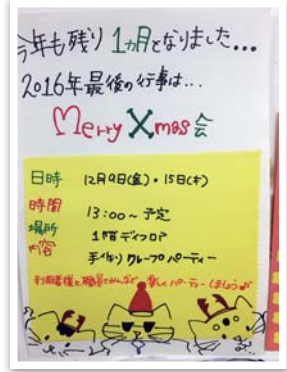 今年も残り1ヵ月となりました...
2016年最後の行事は...
Merry Xmas会
日時 12月9日(金)・15日(木)
時間 13:00～予定
場所 1階デイフロア
内容 手作りクレープパーティー
利用者様と職員とみんなで楽しいパーティーにしましょう♪